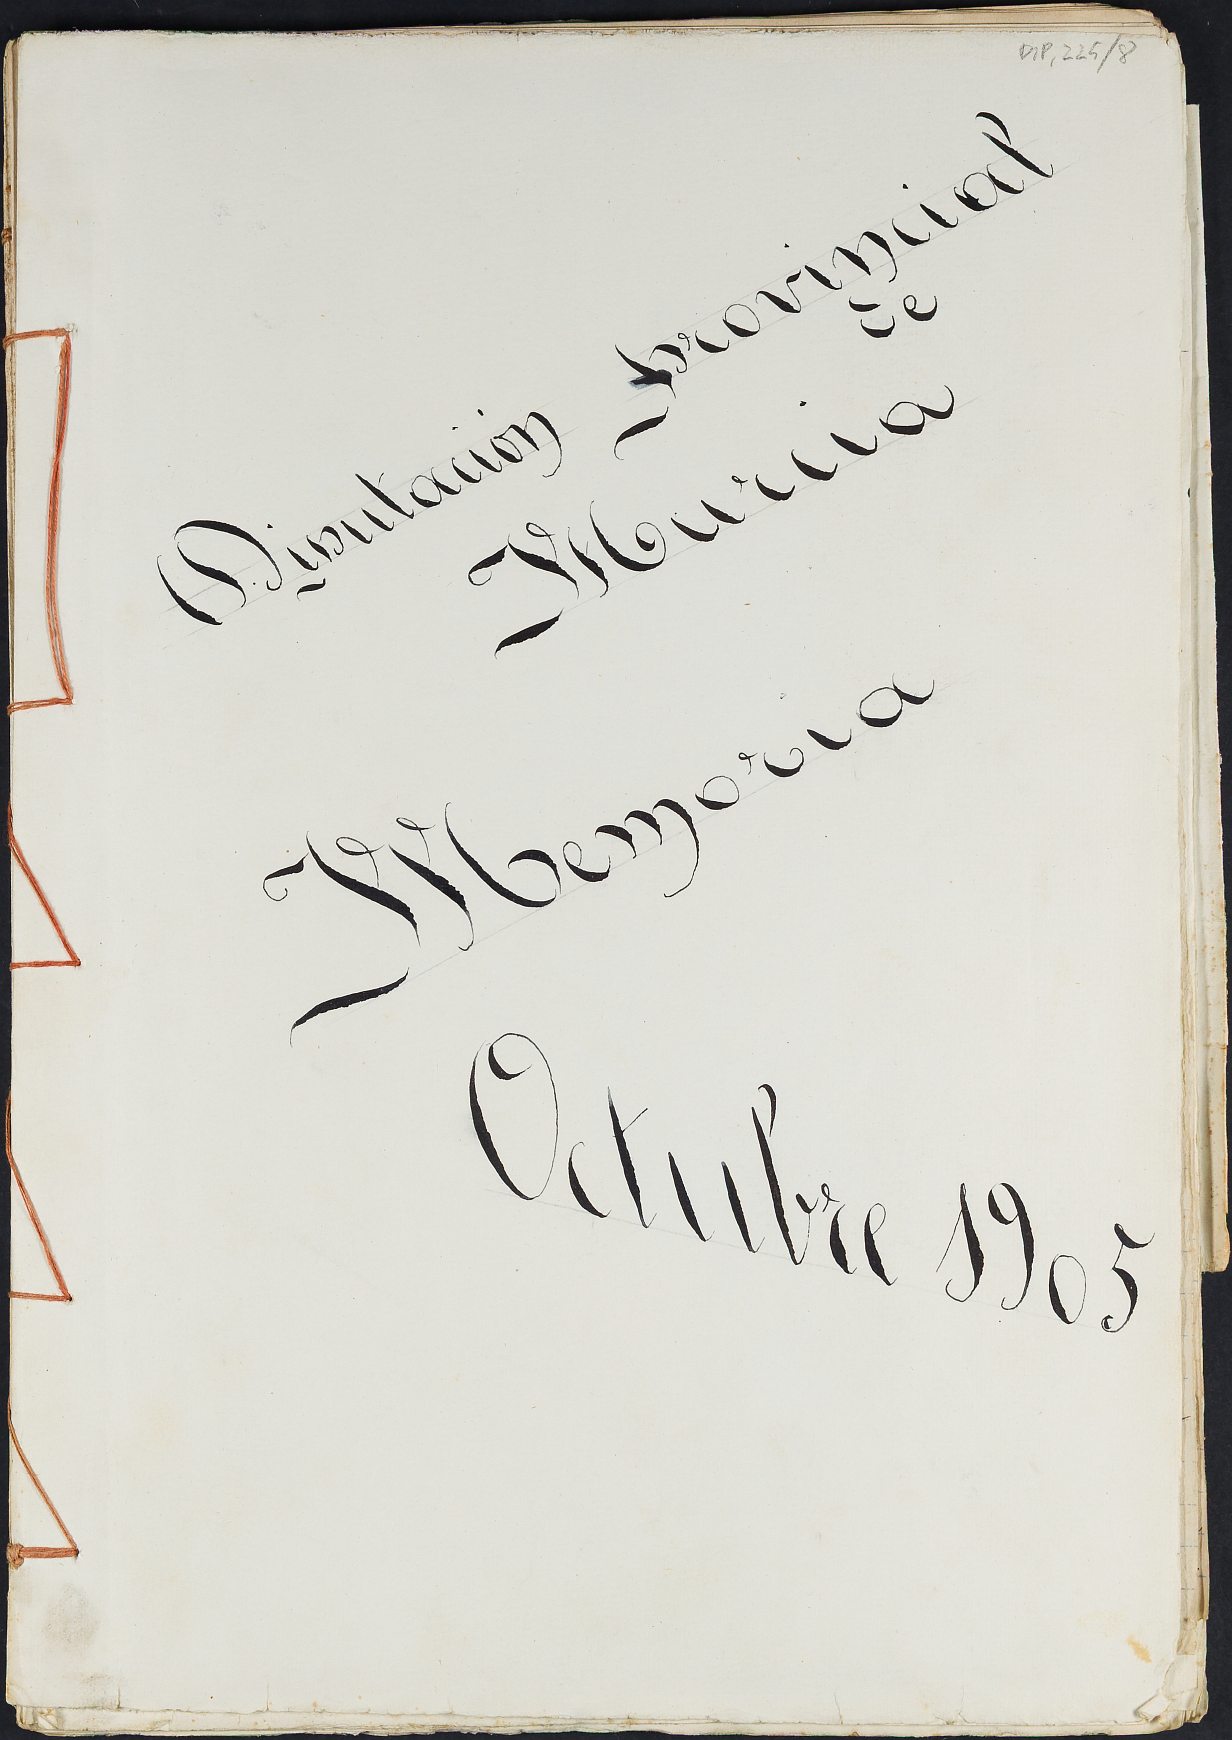 DIP, 225/8
Diputacion provincial
de
Murcia
Memoria
Octubre 1905